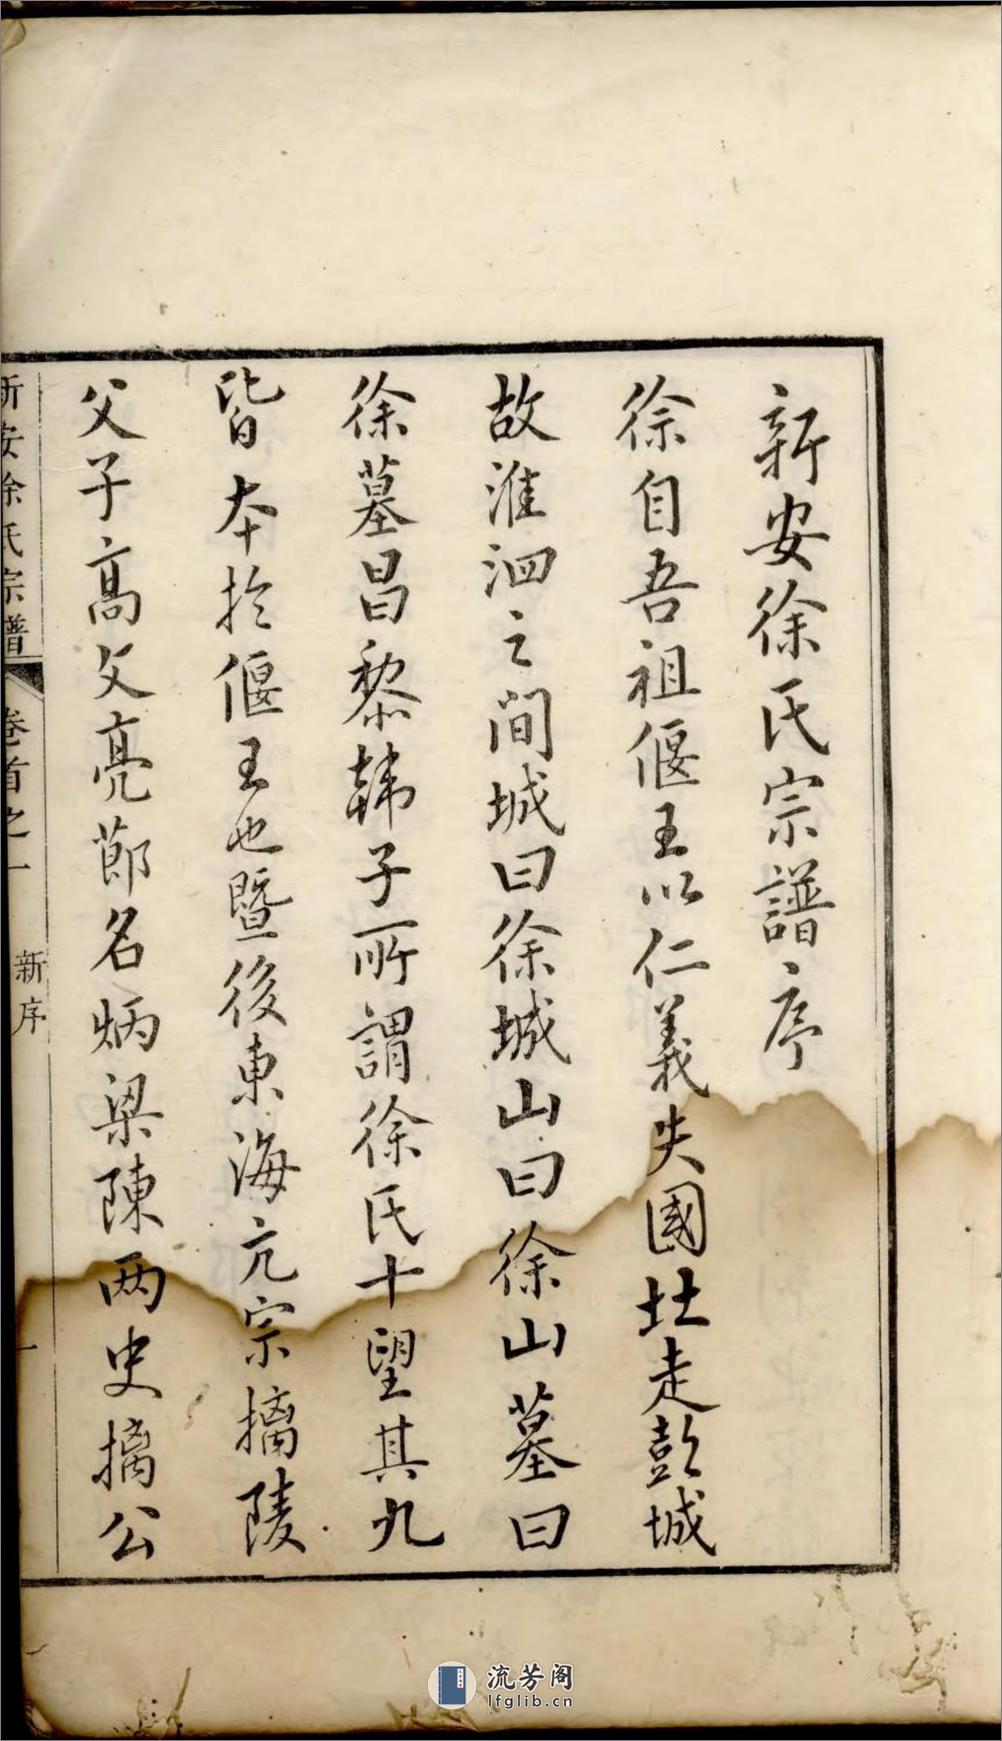 新安徐氏宗譜序
徐自吾祖偃王以仁義失國北走彭城
故淮泗之間城曰徐城山曰徐山墓曰
徐墓昌黎韓子所謂徐氏十望其九
皆本於偃王也暨後東海亢宗摛陵
父子高文亮節名炳梁陳两史摛公
新安徐氏宗譜
卷首之一
新序
一
流芳阁
lfglib.cn